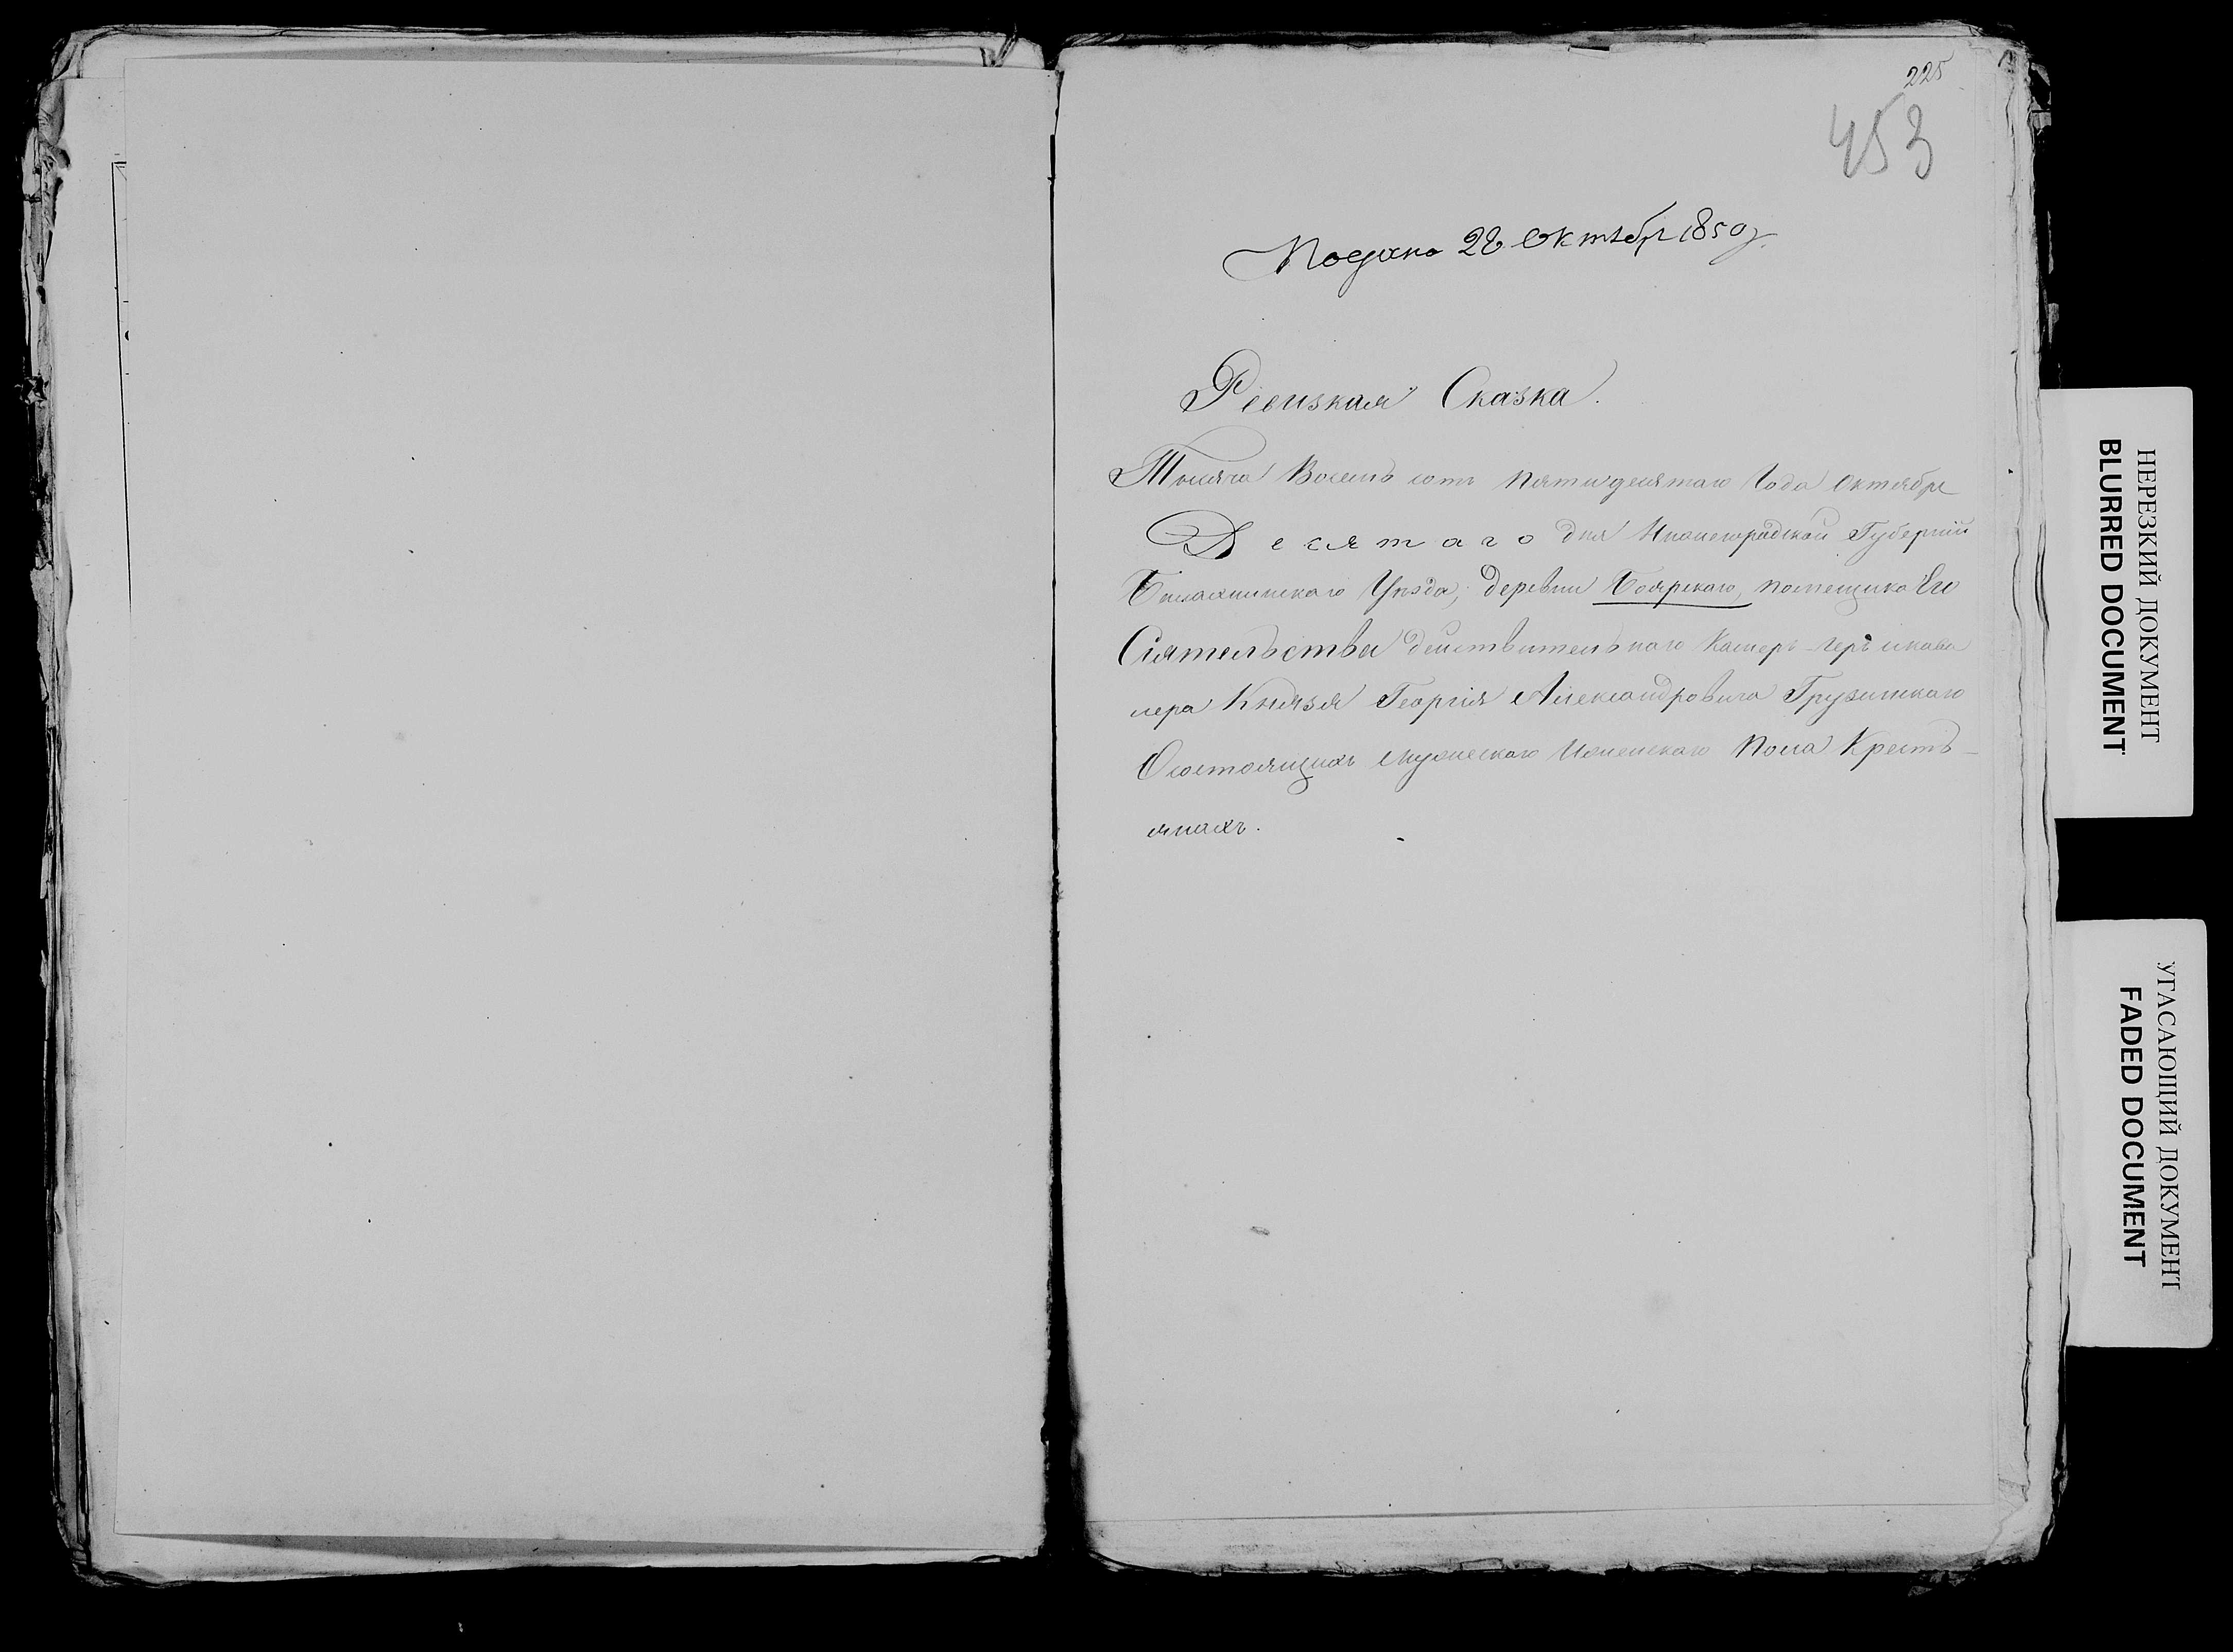 225
453
Подано 28 Октября 1850 г.
Ревизкая Сказка.
Тысяча Восемь сотъ пятидесятаго Года Октября
Десятаго дня Нижегорадской Губерніи
Балахнинскаго Уезда, деревни Боярскаго, помещика Его
Сіятельства действительнаго Камеръ-геръ икава
лера Князя Георгія Александровича Грузинскаго
Осостоящихъ Мужескаго Иженскаго Пола Кресть-
янахъ.
НЕРЕЗКИЙ ДОКУМЕНТ
BLURRED DOCUMENT
УГАСАЮЩИЙ ДОКУМЕНТ
FADED DOCUMENT